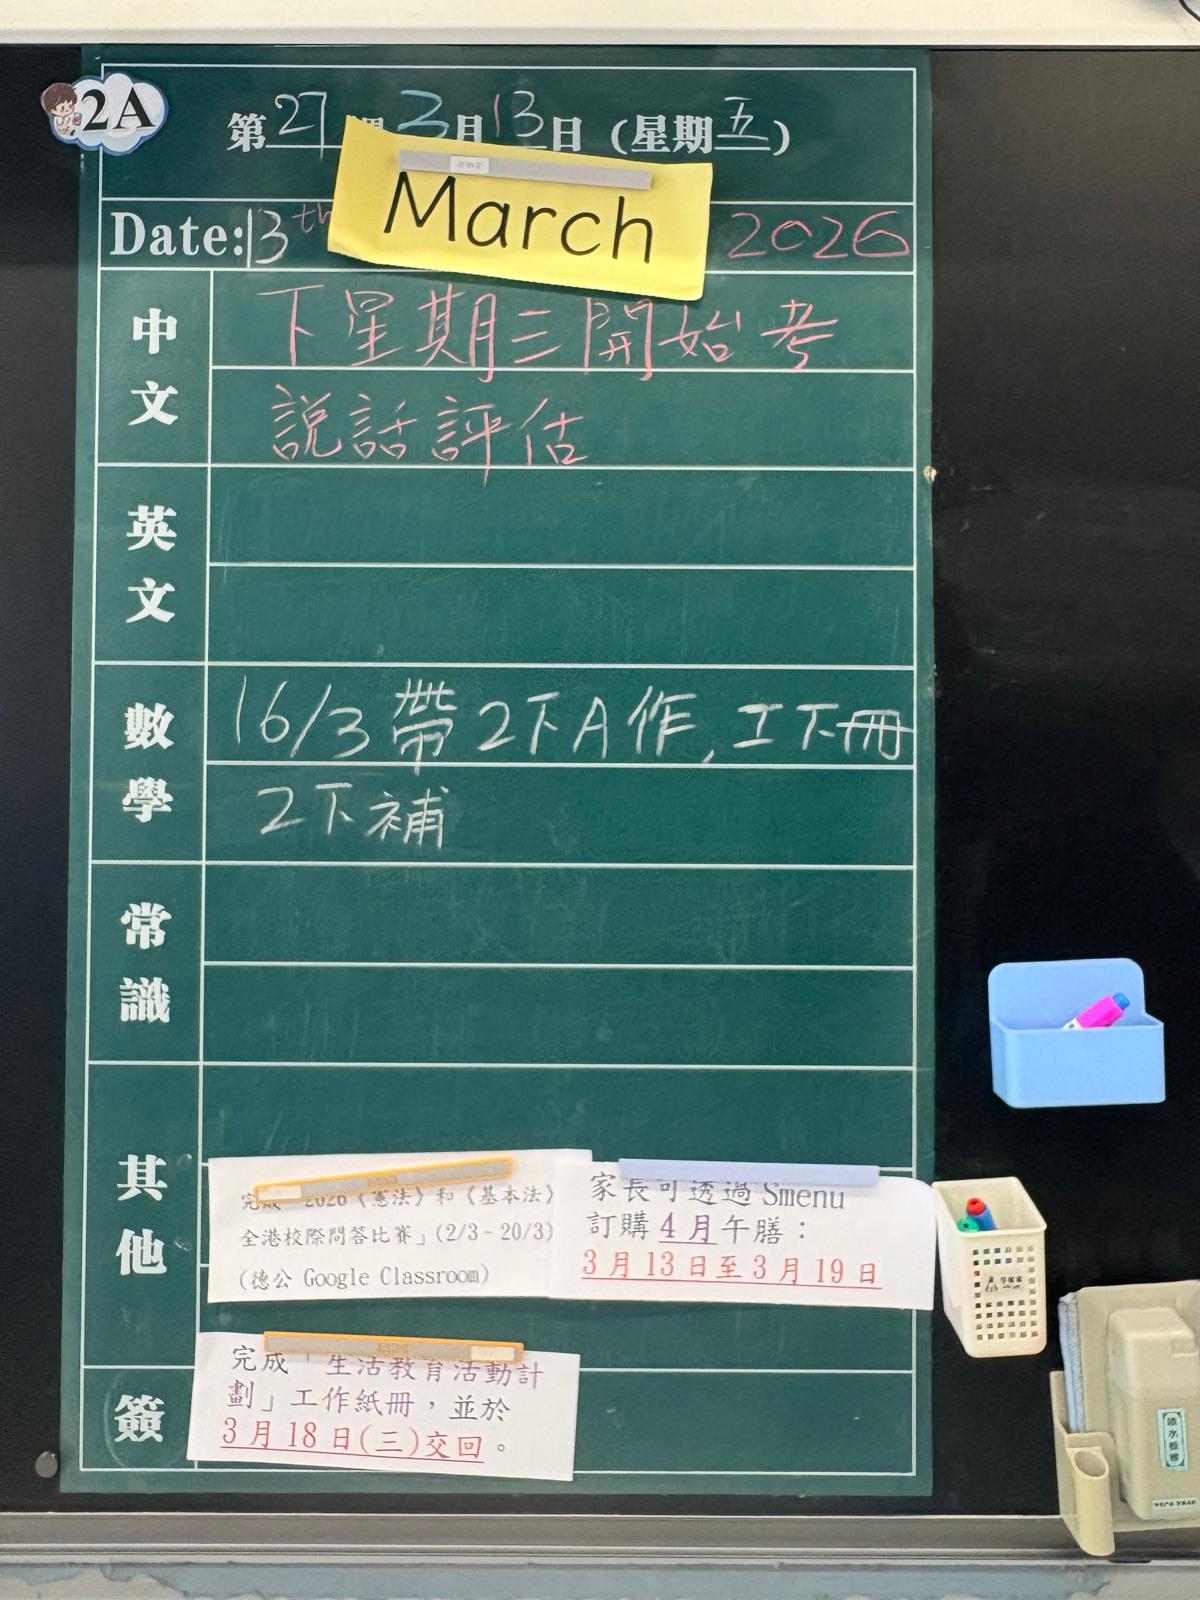 2A
第27週 3月13日 (星期五)
Date: 13th March 2026
中文
下星期三開始考
說話評估
英文
數學
16/3 帶2下A作, 工下冊
2下補
常識
其他
完成 2026《憲法》和《基本法》
全港校際問答比賽」(2/3-20/3)
(德公 Google Classroom)
家長可透過 Smenu
訂購 4月午膳：
3月13日至3月19日
簽
完成「生活教育活動計
劃」工作紙冊，並於
3月18日(三)交回。